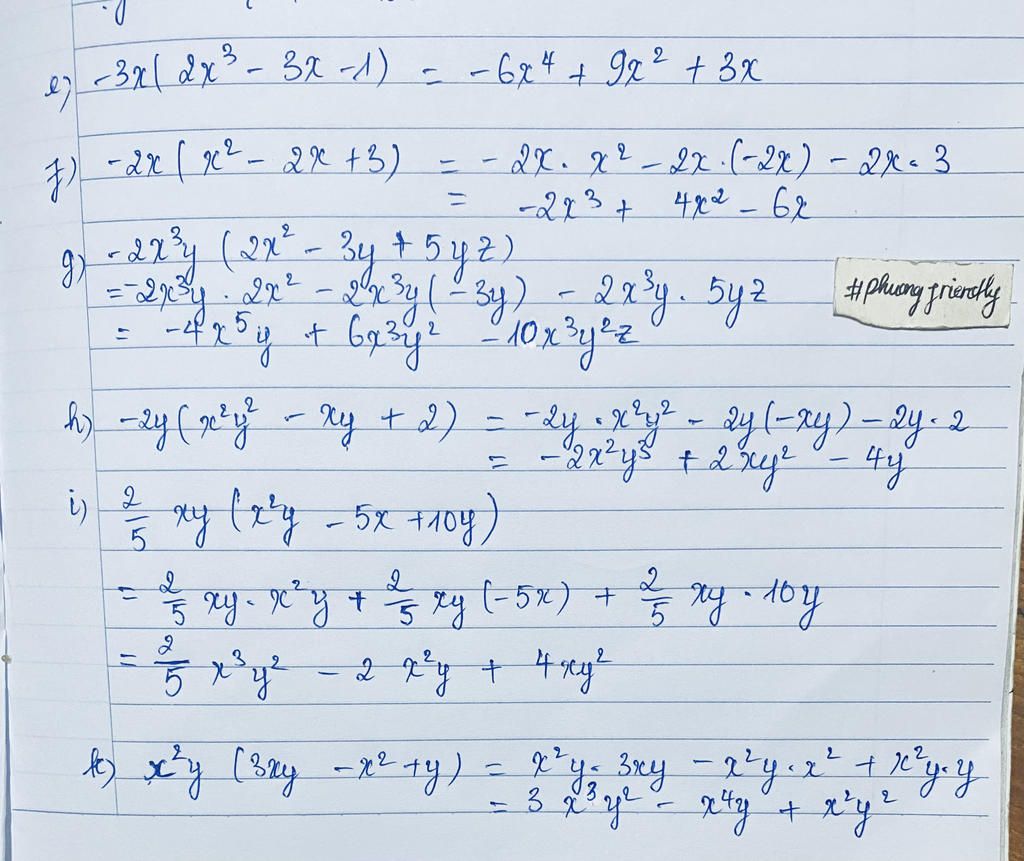 e) -3x( 2x³ - 3x -1) = -6x⁴ + 9x² + 3x
f) -2x ( x² - 2x +3) = - 2x . x² - 2x .(-2x) - 2x . 3
= -2x³ + 4x² - 6x
g) -2x³y ( 2x² - 3y + 5yz)
=-2x³y . 2x² - 2x³y(-3y) - 2x³y . 5yz
#phuongfriendly
= -4x⁵y + 6x³y² - 10x³y²z
h) -2y ( x²y² - xy + 2) = -2y . x²y² - 2y (-xy) - 2y . 2
= -2x²y³ + 2xy² - 4y
i) 2/5 xy (x²y - 5x +10y)
= 2/5 xy . x²y + 2/5 xy (-5x) + 2/5 xy . 10y
= 2/5 x³y² - 2 x²y + 4xy²
k) x²y (3xy - x² + y) = x²y . 3xy - x²y . x² + x²y . y
= 3 x³y² - x⁴y + x²y²